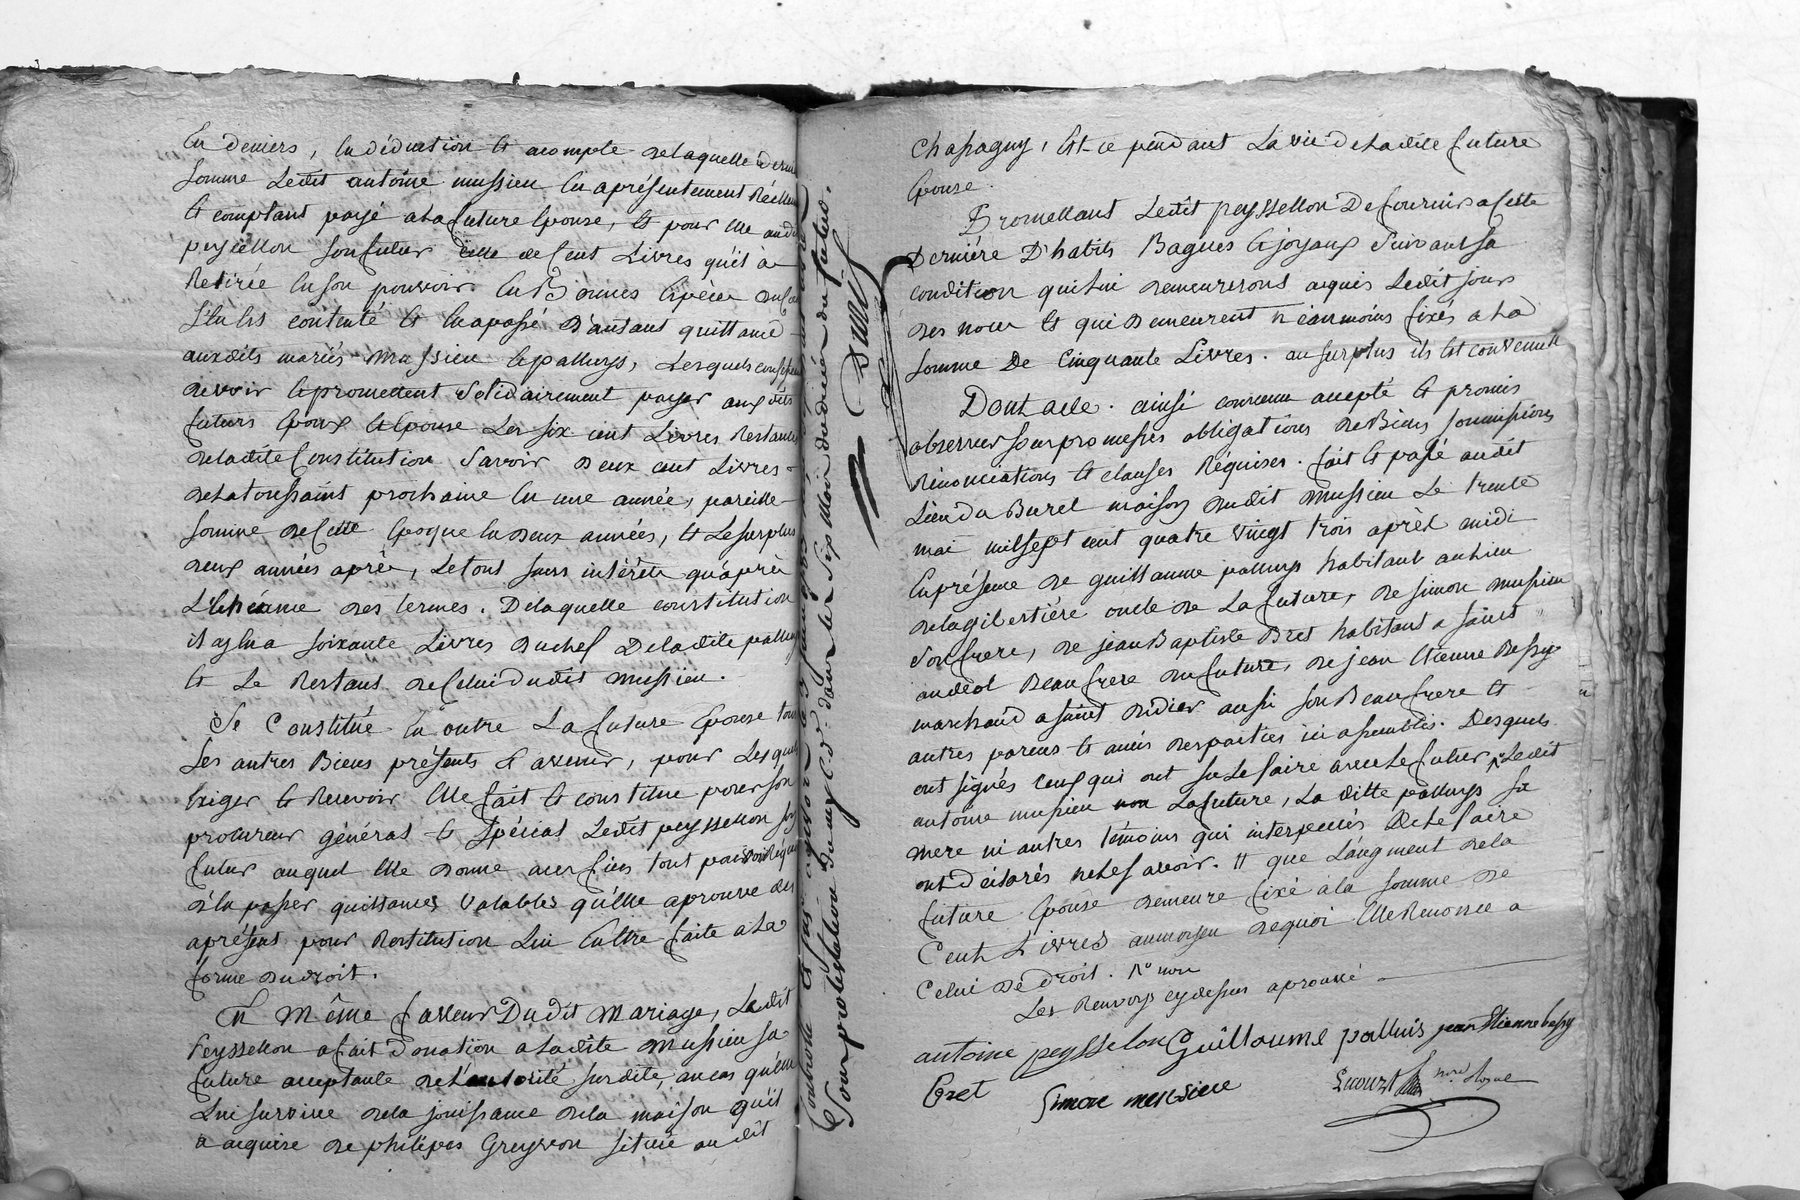 En deniers, en déduction et acompte de laquelle derniere
somme ledit antoine mussieu en a présentement Réellement
et comptant payé a la future épouse, et pour elle audit
peyssellon son futur celle de cent Livres qu'il a
Retirée en son pouvoir en Bonnes espèces
s'en est contenté et en a passé d'autant quittance
auxdits mariés mussieu et palluys, Lesquels
devoir et promettent solidairement payer auxdits
futurs époux et épouse Les six cent Livres Restantes
de ladite Constitution savoir deux cent Livres
de la toussaint prochaine en une année, pareille
somme de cette époque en deux années, et Le surplus
deux années après, Le tout sans intérêts qu'après
L'échéance des termes. De laquelle constitution
il ay en a soixante Livres du chef De ladite palluys
et Le Restant de Celui dudit mussieu.
Se Constitue en outre La future épouse tous
ses autres Biens présents et avenir, pour Lesquels
Exiger et Recevoir elle fait et constitue pour son
procureur général et spécial Ledit peyssellon son
futur auquel elle donne avec fiens tout pouvoir Requis
d'en passer quittances valables qu'elle aprouve des
aprésent pour Restitution Lui en être faite a La
forme du droit.
En même faveur Dudit Mariage, Ledit
Peyssellon a fait Donation a ladite Mussieu sa
future acceptante de l'autorité susdite, au cas qu'elle
Lui survive de la jouissance de la maison qu'il
a acquise de philipes Greyson située audit
Controlé
Sous protestation du dernier du futur.
Chassagny, et ce pendant La vie de ladite future
épouse.
Promettant Ledit peyssellon De fournir a Cette
Derniére D'habits Bagues et joyaux suivant sa
condition qui lui demeureront acquis Ledit jour
des noces et qui Demeurent néanmoins fixés a la
somme De Cinquante Livres. au surplus ils et convenu
Dont acte. ainsi convenu accepté et promis
observer sous promesses obligations de Biens soumissions
Rénonciations et clauses Réquises. fait et passé audit
Lieu du Burel maison dudit Mussieu Le trente
mai mil sept cent quatre vingt trois après midi
En présence de guillaume palluys habitant au Lieu
de la gilbertière oncle de La future, de simon mussieu
son frere, de jean Baptiste Bret habitant a saint
andéol Beau frere du futur, de jean etienne Bessy
marchand a saint didier aussi son Beau frere et
autres parens et amis des parties ici assemblés. Desquels
ont signés ceux qui ont su Le faire avec Le futur Ledit
antoine mussieu non La future, La ditte palluys sa
mere ni autres témoins qui interpellés De Le faire
ont déclarés ne Le savoir. // que L'augment de la
future épouse demeure fixé a la somme de
Cent Livres au moyen de quoi elle Renonce a
Celui De Droit. Rº non
Les Renvoys cy dessus aprouvé
antoine peysselon Guillaume palluis jean Etienne bessy
Bret Simon messieu